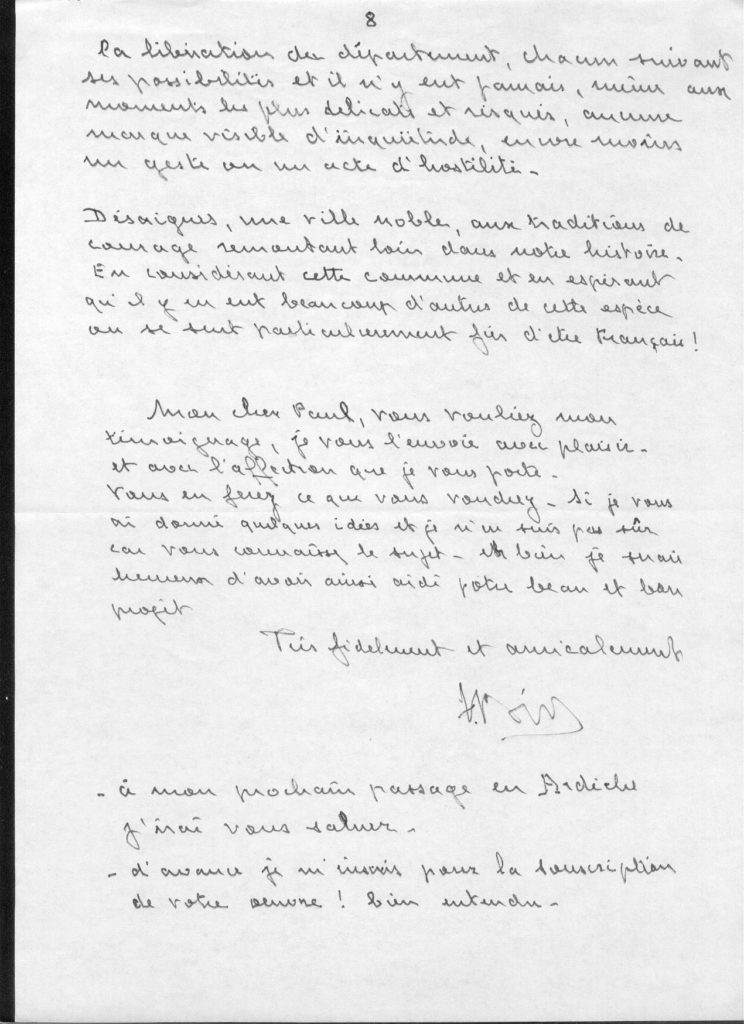 8
la libération du département, chacun suivant
ses possibilités et il n'y eut jamais, même aux
moments les plus délicats et risqués, aucune
marque visible d'inquiétude, encore moins
un geste ou un acte d'hostilité -
Désaignes, une ville noble, aux traditions de
courage remontant loin dans notre histoire.
En considérant cette commune et en espérant
qu'il y en eut beaucoup d'autres de cette espèce
on se sent particulièrement fier d'être Français !
Mon cher Paul, vous vouliez mon
témoignage, je vous l'envoie avec plaisir -
et avec l'affection que je vous porte -
Vous en ferez ce que vous voudrez - Si je vous
ai donné quelques idées et je n'en suis pas sûr
car vous connaissez le sujet - eh bien je serai
heureux d'avoir ainsi aidé votre beau et bon
projet
Très fidèlement et amicalement
- à mon prochain passage en Ardèche
j'irai vous saluer -
- d'avance je m'inscris pour la souscription
de votre oeuvre ! bien entendu -